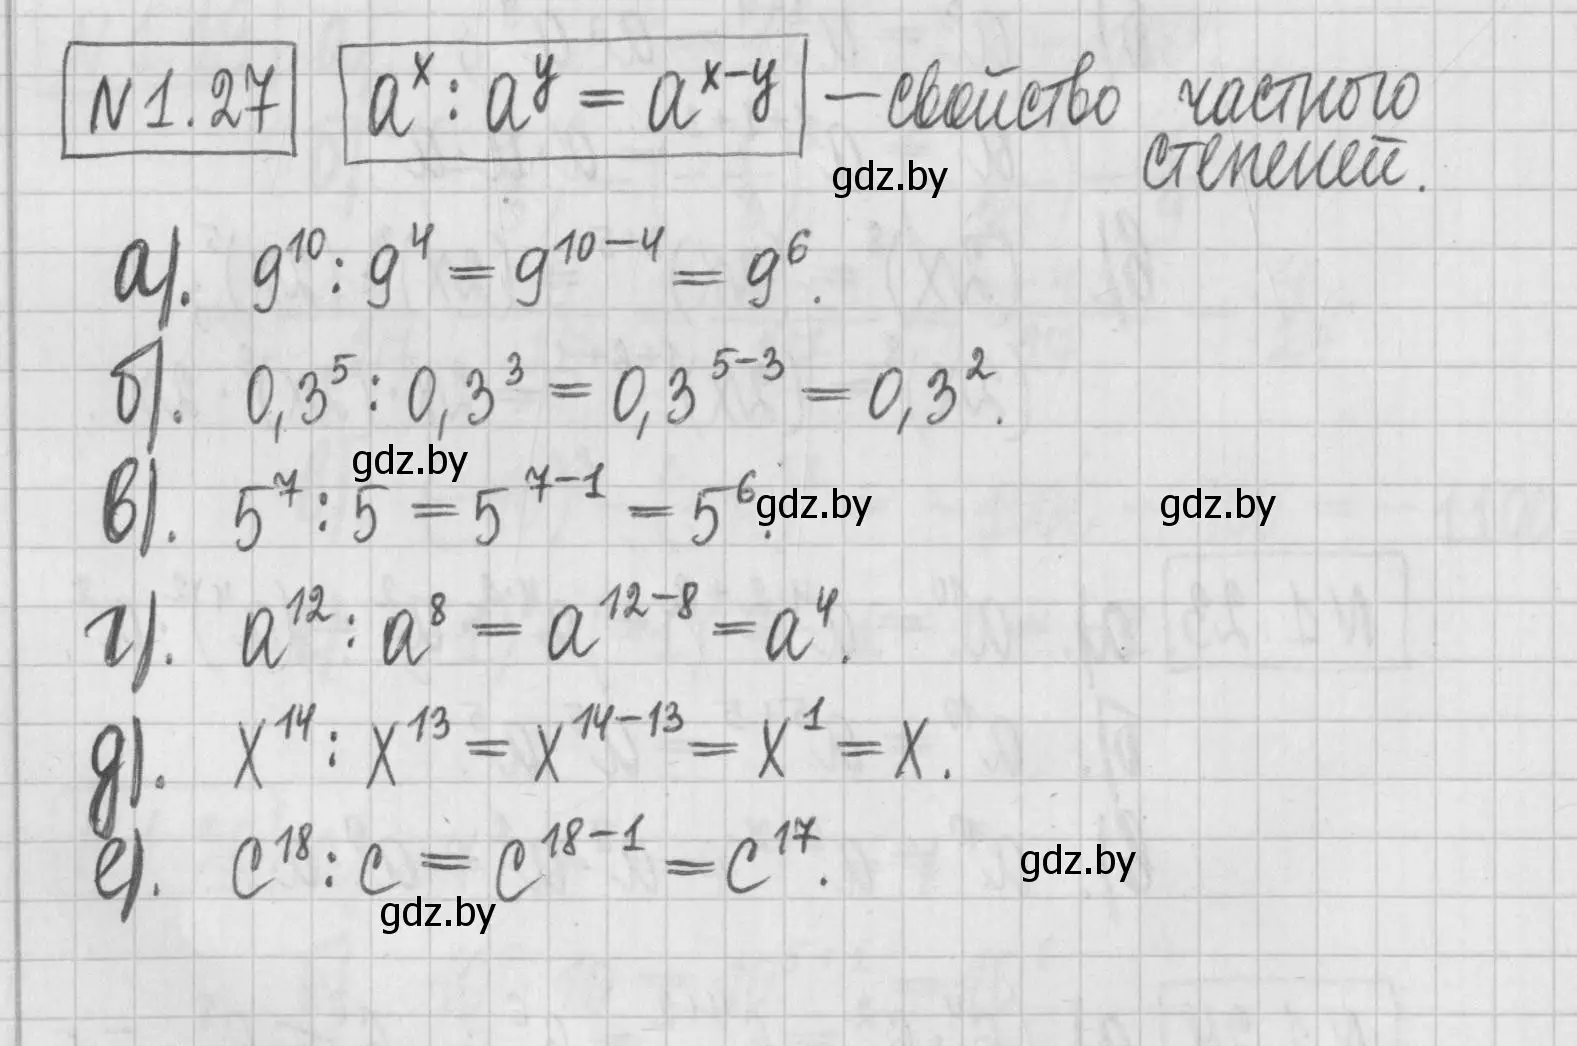 N1.27 aˣ : aʸ = aˣ⁻ʸ — свойство частного
степеней.
gdz.by
а). 9¹⁰ : 9⁴ = 9¹⁰⁻⁴ = 9⁶.
б). 0,3⁵ : 0,3³ = 0,3⁵⁻³ = 0,3².
gdz.by
в). 5⁷ : 5 = 5⁷⁻¹ = 5⁶. gdz.by gdz.by
г). a¹² : a⁸ = a¹²⁻⁸ = a⁴.
д). x¹⁴ : x¹³ = x¹⁴⁻¹³ = x¹ = x.
е). c¹⁸ : c = c¹⁸⁻¹ = c¹⁷. gdz.by
gdz.by